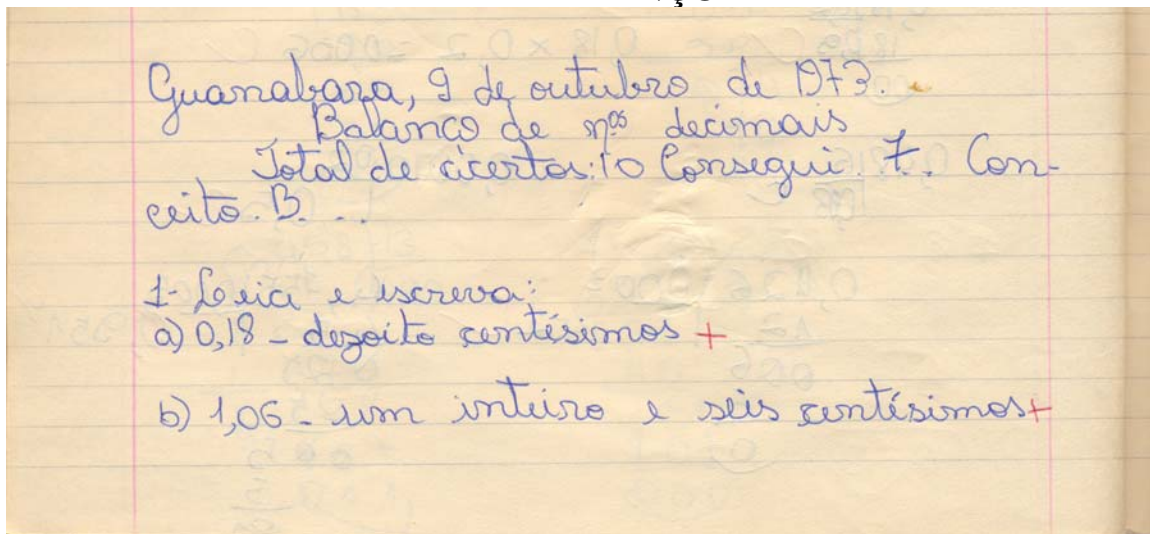 Guanabara, 9 de outubro de 1973.
Balanço de nºs decimais
Total de acertos: 10 Consegui. 7. Con-
ceito. B. ...
1- Leia e escreva:
a) 0,18 - dezoito centésimos +
b) 1,06 - um inteiro e seis centésimos +